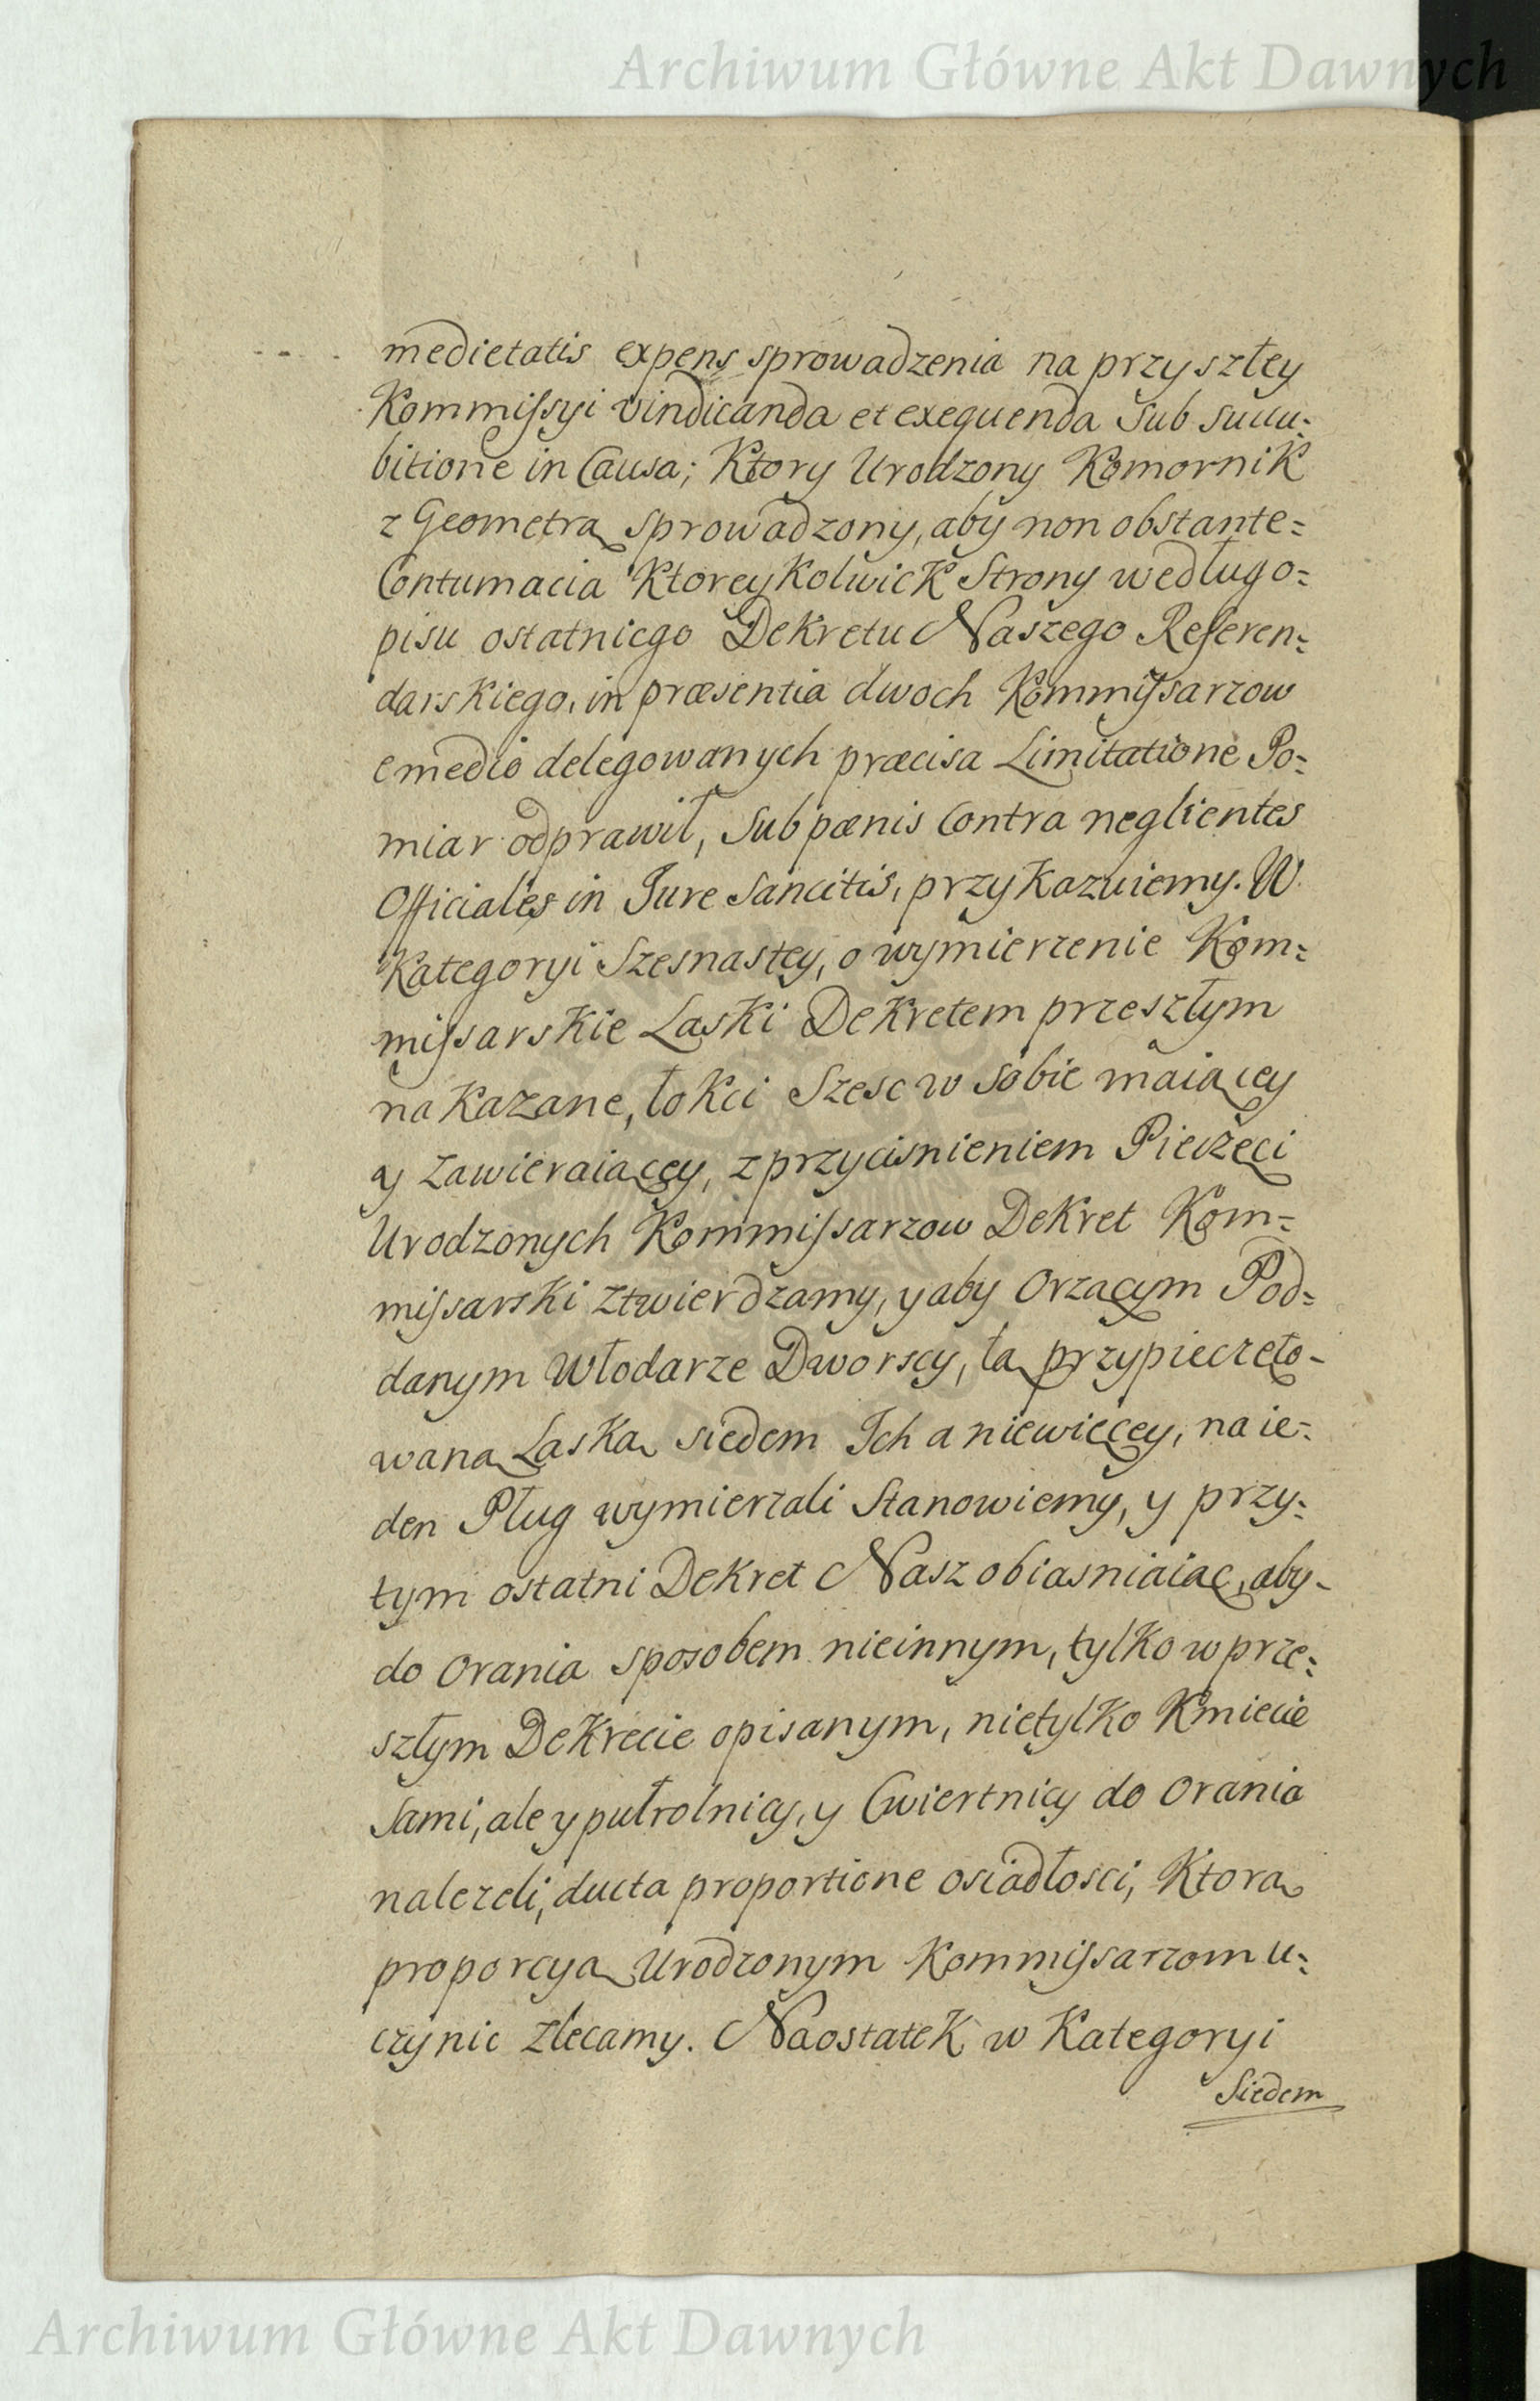 Archiwum Główne Akt Dawnych
medietatis expens sprowadzenia na przyszłey
Kommissyi vindicanda et exequenda sub succu=
bitione in Causa; Ktory Urodzony Komornik
z Geometrą sprowadzony, aby non obstante=
Contumacia Ktorey Kolwick Strony według o=
pisu ostatniego Dekretu Naszego Referen=
darskiego, in præsentia dwoch Kommissarzow
e medio delegowanych præcisa Limitatione Po=
miar odprawił, sub pœnis Contra neglientes
Officiales in Jure Sancitis, przykazuiemy. W
Kategoryi Szesnastey, o wymierzenie Kom=
missarskie Laski Dekretem przeszłym
nakazane, łokci Szesc w sobie maiącey
y zawieraiącey, z przycisnieniem Pieczęci
Urodzonych Kommissarzow Dekret Kom=
missarski ztwierdzamy, y aby Orzącym Pod=
danym Włodarze Dworscy, tą przypieczęto-
waną Laską siedem Ich a niewięcey, na ie=
den Pług wymierzali Stanowiemy, y przy=
tym ostatni Dekret Nasz obiasniaiąc, aby-
do Orania sposobem nieinnym, tylko w prze=
szłym Dekrecie opisanym, nietylko Kmiecie
Sami, ale y pułrolnicy, y Cwiertnicy do Orania
nalezeli, ducta proportione osiadłosci, Ktorą
proporcyą Urodzonym Kommissarzom u=
czynic zlecamy. Naostatek w Kategoryi
Siedem
Archiwum Główne Akt Dawnych